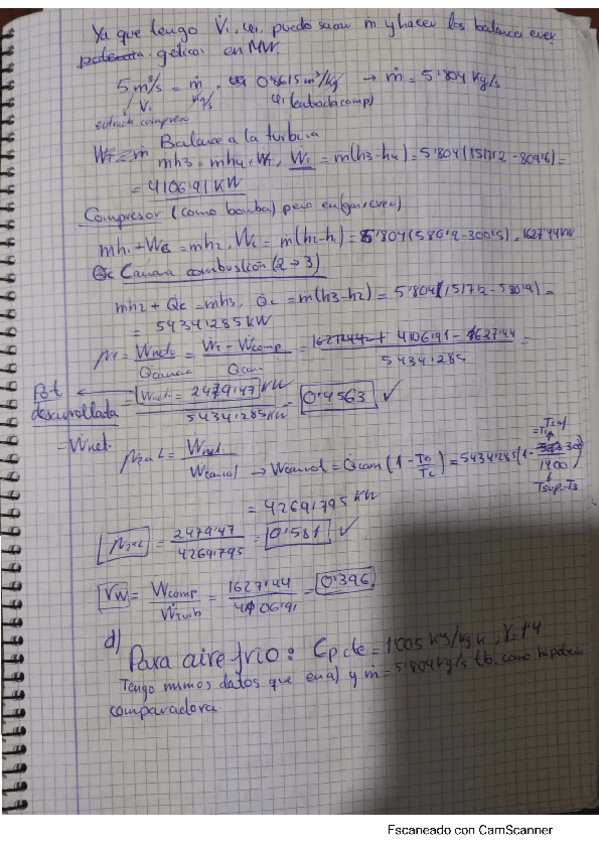 Ya que tengo V̇₁, φ₁, puedo sacar ṁ y hacer los balances ener
géticos en MW
5 m³/s = ṁ · φ₁ 0'8615 m³/kg → ṁ = 5'804 kg/s
V̇₁ kg/s φ₁ (entrada comp)
Balance a la turbina
mh3 = mh4 + Ẇt, Ẇt = m(h3-h4) = 5'804 (1517'2 - 809'6) =
= 4106'91 KW
Compresor (como bomba) pero en
mh1 + Wc = mh2, Wc = m(h2-h1) = 5'804 (586'2 - 300'5) = 1627'44 KW
Qc Cámara combustión (2→3)
mh2 + Qc = mh3, Qc = m(h3-h2) = 5'804 (1517'2 - 580'9) =
= 5434'285 KW
= Wneto / Qcamara = Wt - Wcomp / Qcam = 4106'91 - 1627'44 / 5434'285 =
Pot ← Wnet = 2479'47 KW / 5434'285 KW = 0'4563 ✓
desarrollada
= Ẇnet
= Wnet / Wcarnot → Wcarnot = Q̇cam (1 - To/Tc) = 5434'285 (1 - 300/1400)
Tsup = T3
= 4269'795 KW
= 2479'47 / 4269'795 = 0'581 ✓
rw = Wcomp / Wturb = 1627'44 / 4106'91 = 0'396
d)
Para aire frío: Cp cte = 1'005 KJ/kg K, γ = 1'4
Tengo mismos datos que en a) y ṁ = 5'804 kg/s tb. como hipótesis
comparadora
Escaneado con CamScanner